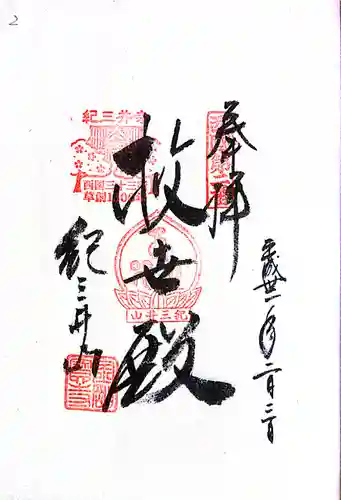 2
奉拝
平成卅一年二月三日
救世殿
紀三井山
紀三井寺
西国三十三
草創1
紀三井山